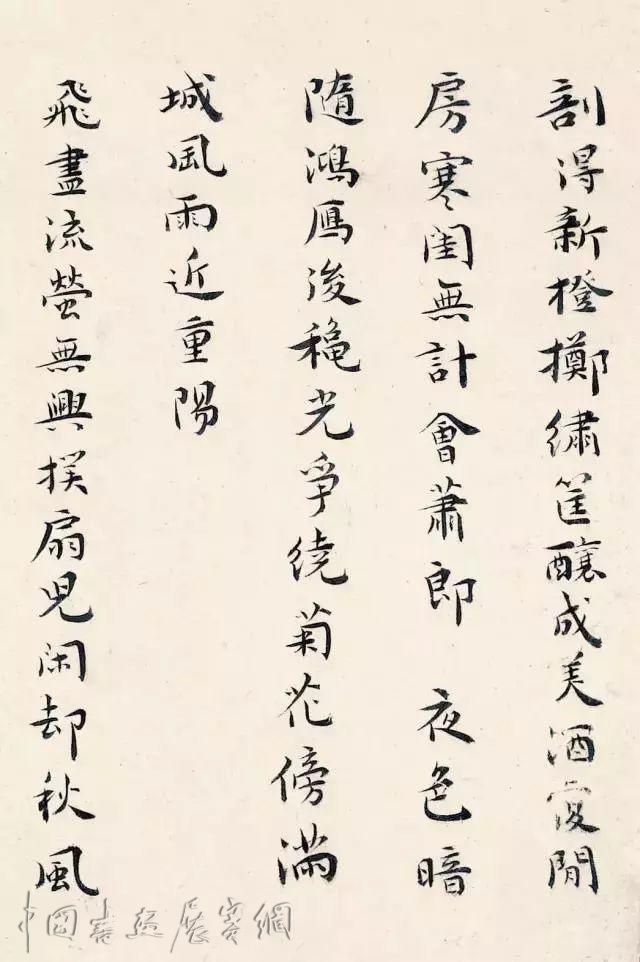 剖得新橙擲繡筐釀成美酒復閒
房寒閨無計會蕭郎 夜色暗
隨鴻鴈後龝光爭繞菊花傍滿
城風雨近重陽
飛盡流螢無興撲扇兒閑却秋風
中國書法展賽網